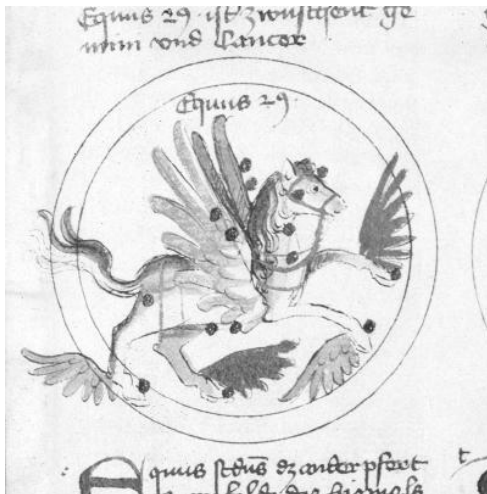 Equus 29 ist zwuschent ge
mini vnd Cancer
Equus 29
Equus scdus dz ander pfert